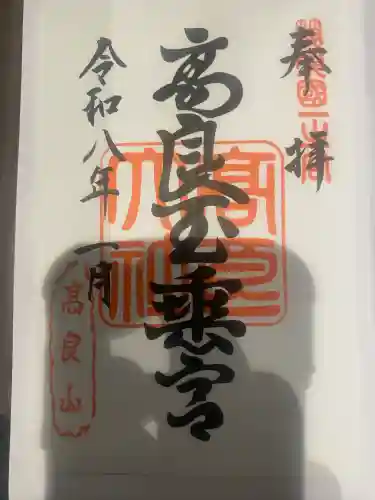 奉拝
高良玉垂宮
令和八年一月
高良大社
高良山